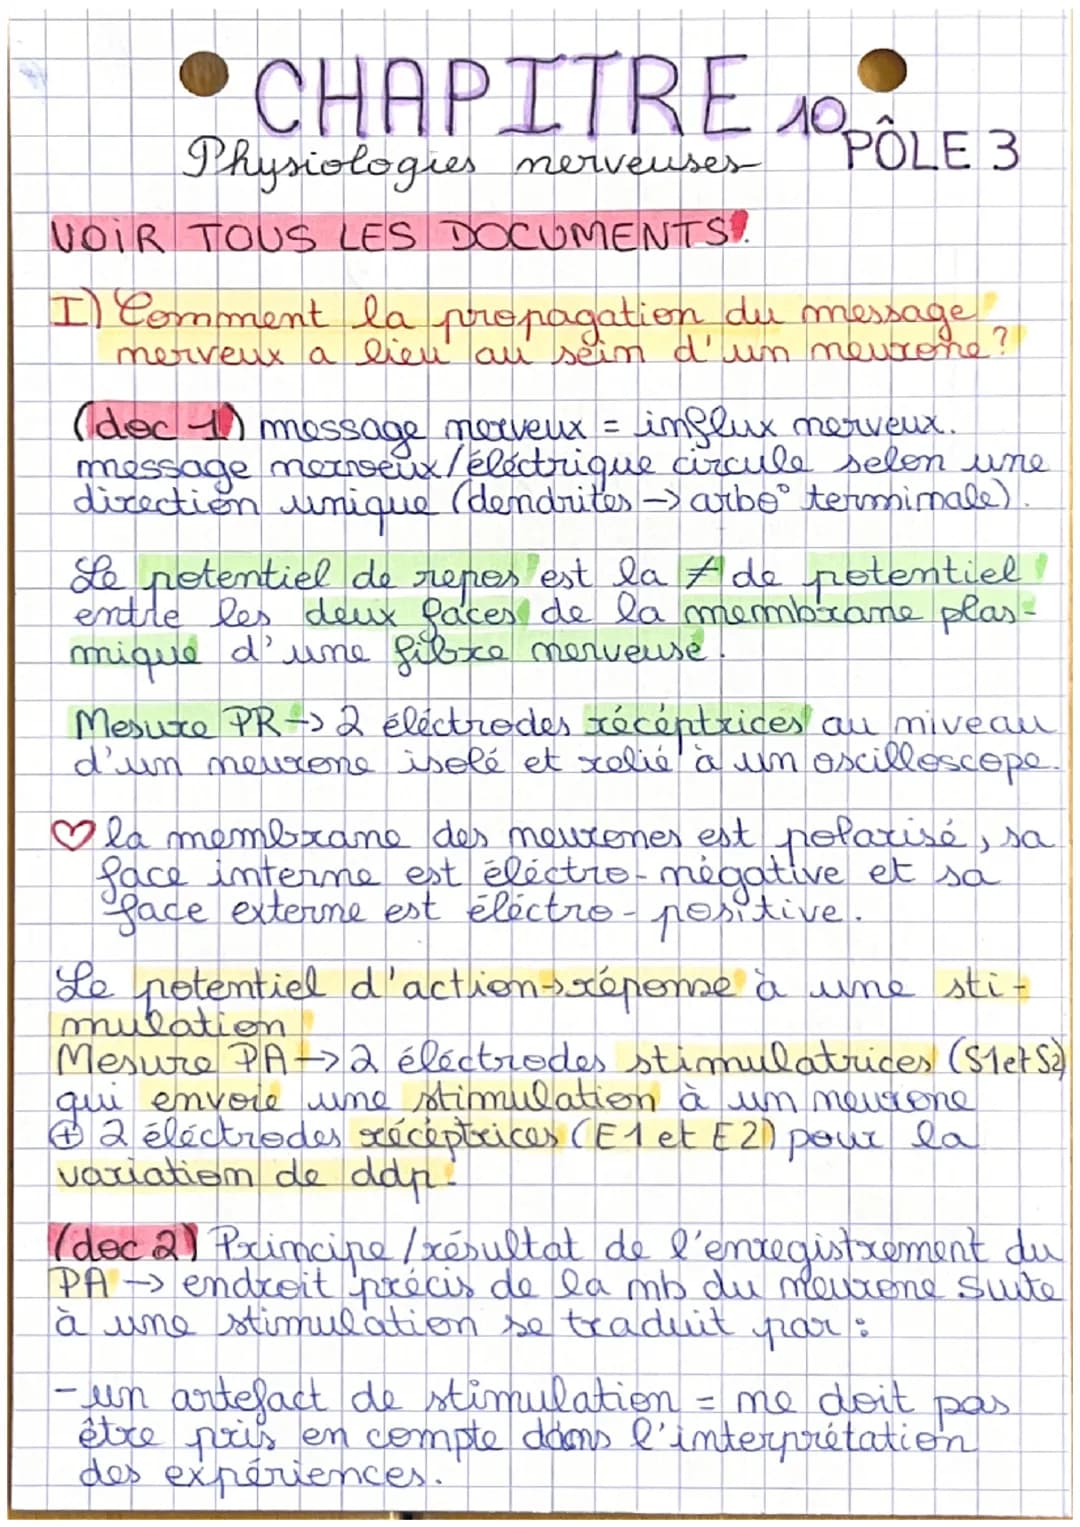 CHAPITRE 10
PÔLE 3
Physiologies nerveuses
VOIR TOUS LES DOCUMENTS!
I) Comment la propagation du message
nerveux a lieu au sein d'un neurone?
(doc 1) message nerveux = influx nerveux.
message nerveux/éléctrique circule selon une
direction unique (dendrites → arbo° terminale).
Le potentiel de repos est la ≠ de potentiel
entre les deux faces de la membrane plas-
mique d'une fibre nerveuse.
Mesure PR → 2 éléctrodes récéptrices au niveau
d'un neurone isolé et relié à un oscilloscope.
♡ la membrane des neurones est polarisé, sa
face interne est éléctro-négative et sa
face externe est éléctro-positive.
Le potentiel d'action → réponse à une sti-
mulation
Mesure PA → 2 éléctrodes stimulatrices (S1 et S2)
qui envoie une stimulation à un neurone
⊕ 2 éléctrodes récéptrices (E1 et E2) pour la
variation de ddp.
(doc 2) Principe/résultat de l'enregistrement du
PA → endroit précis de la mb du neurone suite
à une stimulation se traduit par :
- un artefact de stimulation = ne doit pas
être pris en compte ddans l'interprétation
des expériences.